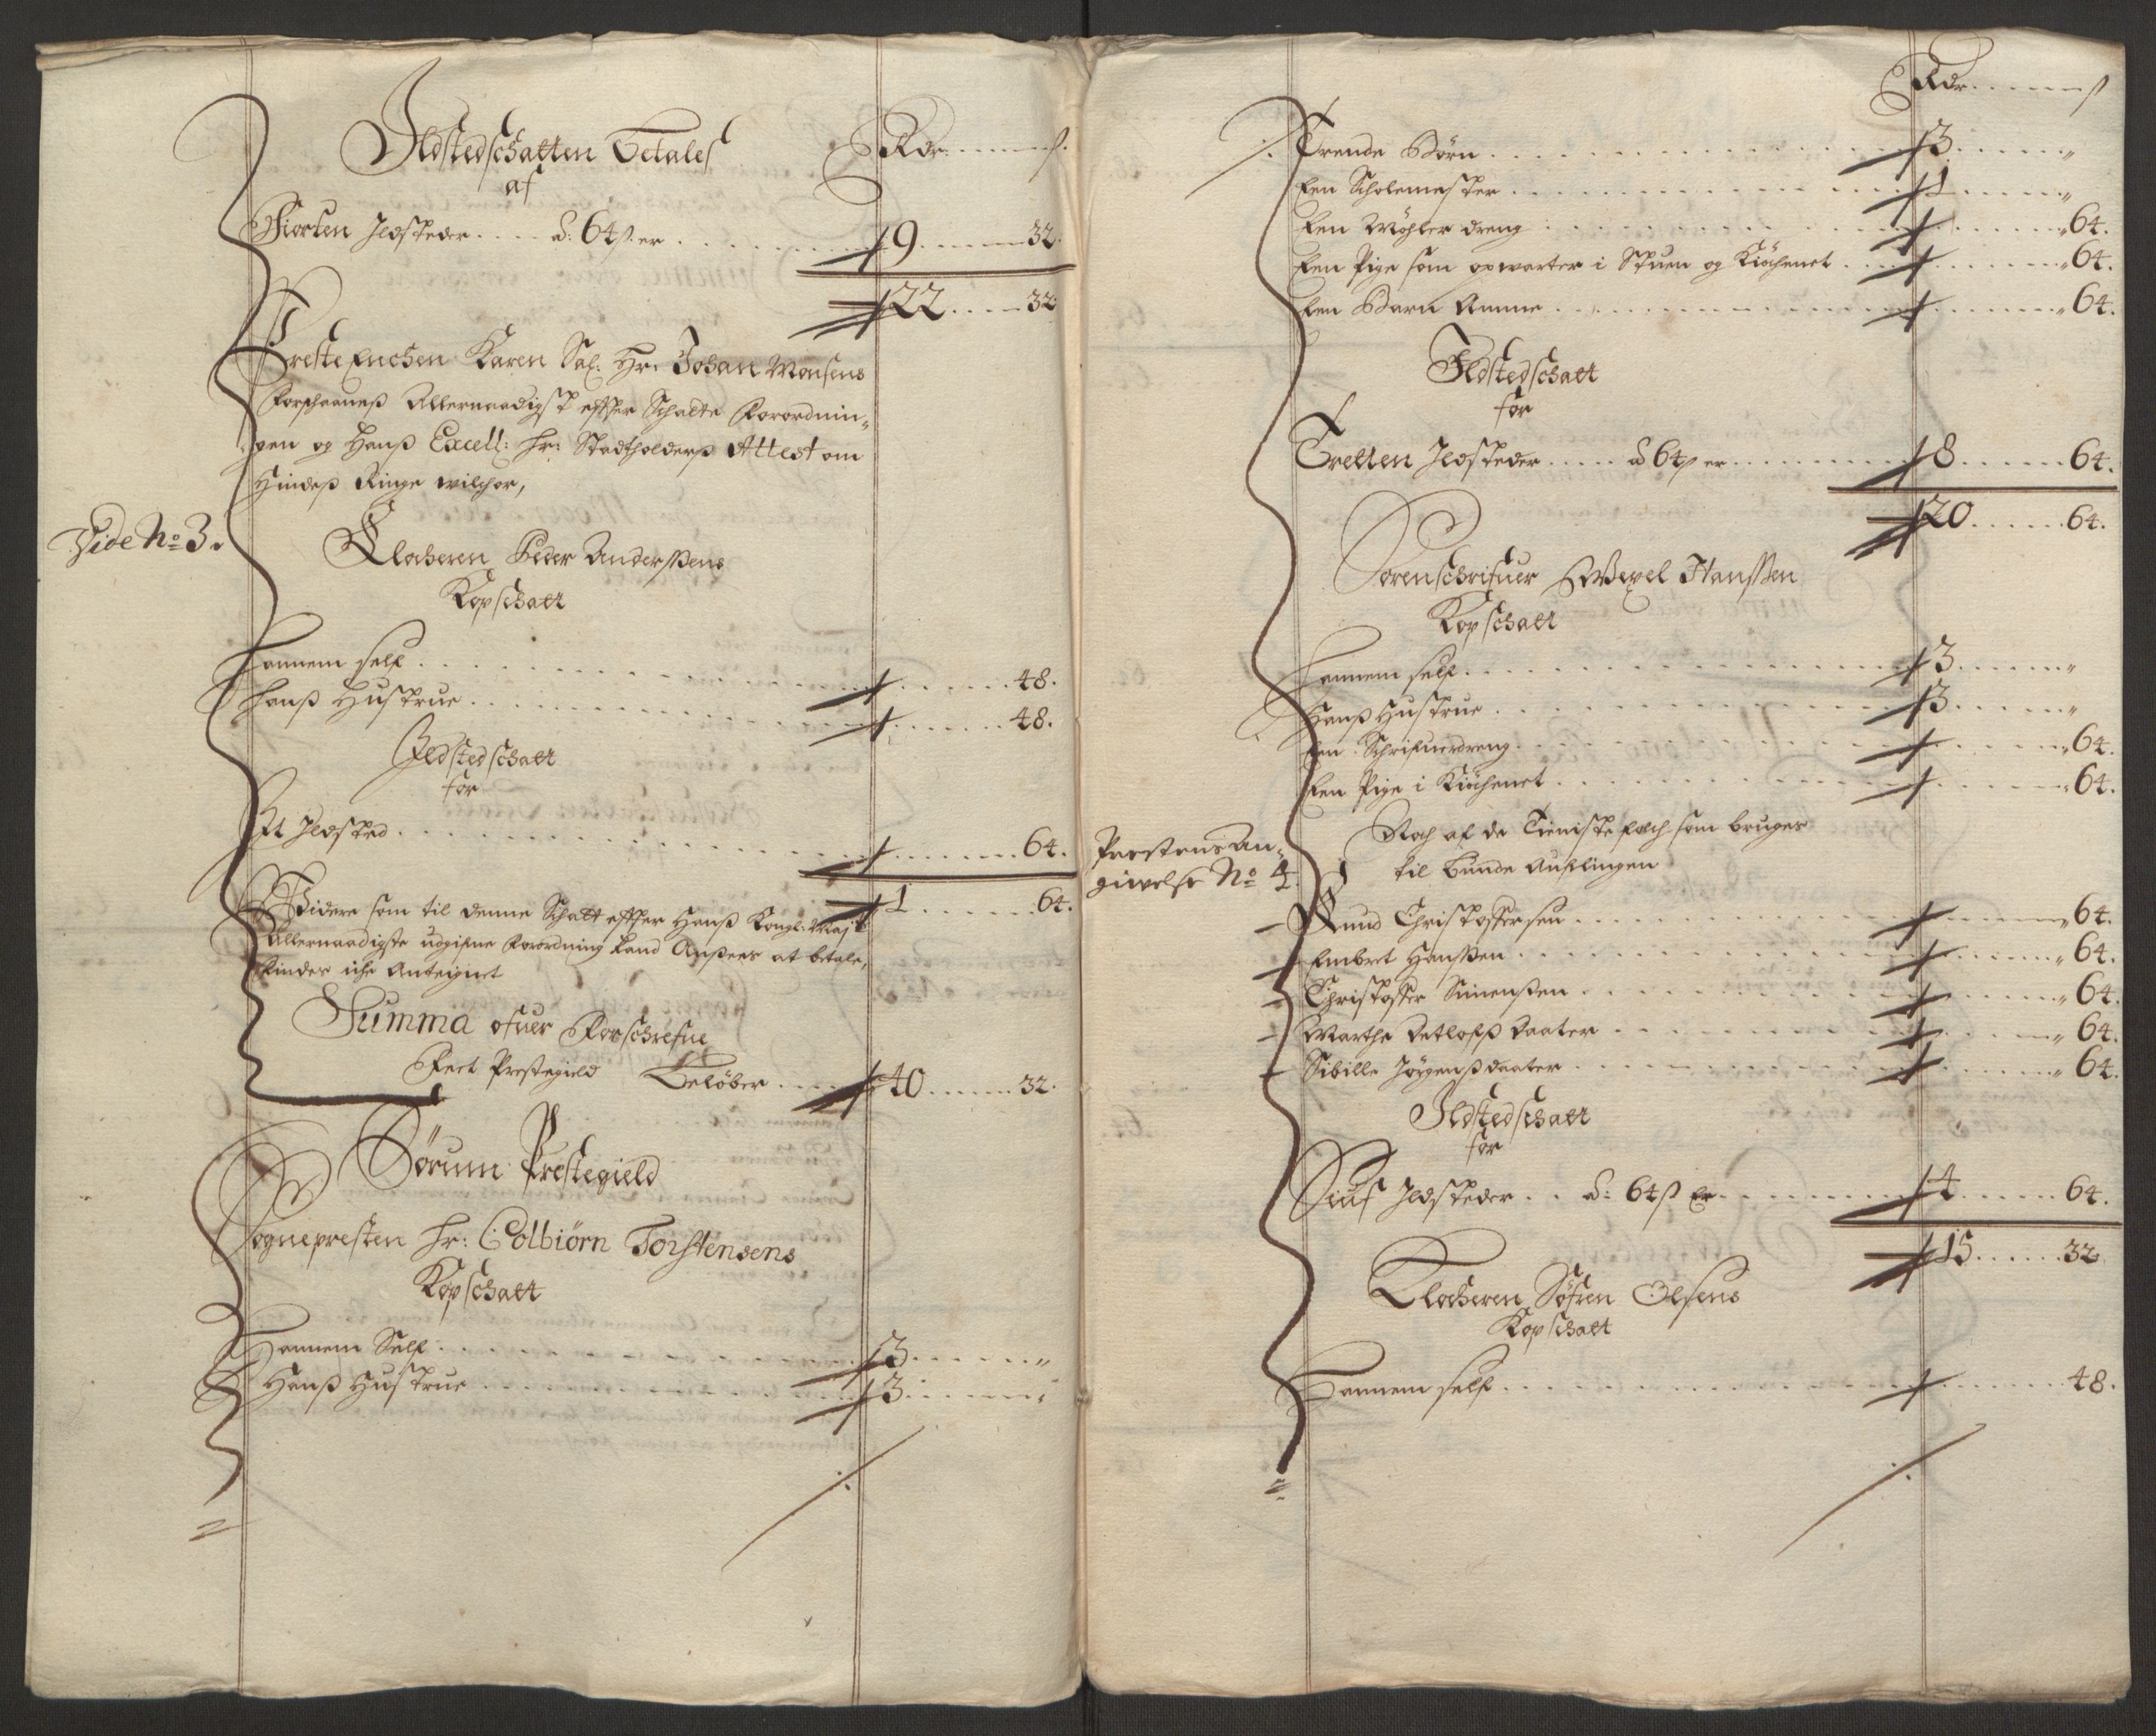 Ildstedschatten betales
af
Rdr ß.
Fiorten Ildsteder .... à: 64 ß. er ....... 9 .... 32.
22 .... 32
Preste Enchen Karen Sal: Hr. Johan Monsens
Forschaaneß Allernaadigst effter Schatte Forordnin-
gen og Hanß Excell: Hr: Stadtholderß Attest om
Hindeß Ringe wilchor,
Vide No 3.
Klocheren Peder Anderssens
Kopschatt
Hannem self ....... 48.
Hanß Hustrue ....... 48.
Ildstedschatt
for
Et Ildsted ....... 64.
1 ...... 64.
Widere som til denne Schatt effter Hanß Kongl: Mayts
Allernaadigste udgifne Forordning kand Ansees at betale,
findes iche Antegnet
Summa ofuer Forschrefne
Feet Prestegield Beløber .... 40 ..... 32.
Sørum Prestegield
Sognepresten Hr: Colbiørn Torstensens
Kopschatt
Hannem Self ....... 3 ..... "
Hanß Hustrue ....... 3 ..... "
Rdr ß
Trende Børn ....... 3 ..... "
Een Scholemester ....... 1 ..... "
Een dreng ....... 64.
Een Pige som opwarter i Stuen og Kiøchenet .... 64.
Een Barn Amme ....... 64.
Ildstedschatt
for
Tretten Ildsteder ..... à 64 ß er ....... 8 ..... 64.
20 ..... 64.
Sorenschrifuer Wexel Hanssen
Kopschatt
Hannem self ....... 3 ..... "
Hanß Hustrue ....... 3 ..... "
Een Schrifuerdreng ....... 64.
Een Pige i Kiøchenet ....... 64.
Noch af de Tieniste folch som bruges
til bunde Auflingen
Prestens An-
givelse No 4.
Knud Christoffersen ....... 64.
Embret Hanssen ....... 64.
Christoffer Simenssen ....... 64.
Marthe Detlofß daater ....... 64.
Sibille Jørgenßdaater ....... 64.
Ildstedschatt
for
Siuf Ildsteder .. à: 64 ß Er ....... 4 ..... 64.
15 ..... 32
Klocheren Søfren Olsens
Kopschatt
Hannem self ....... 48.